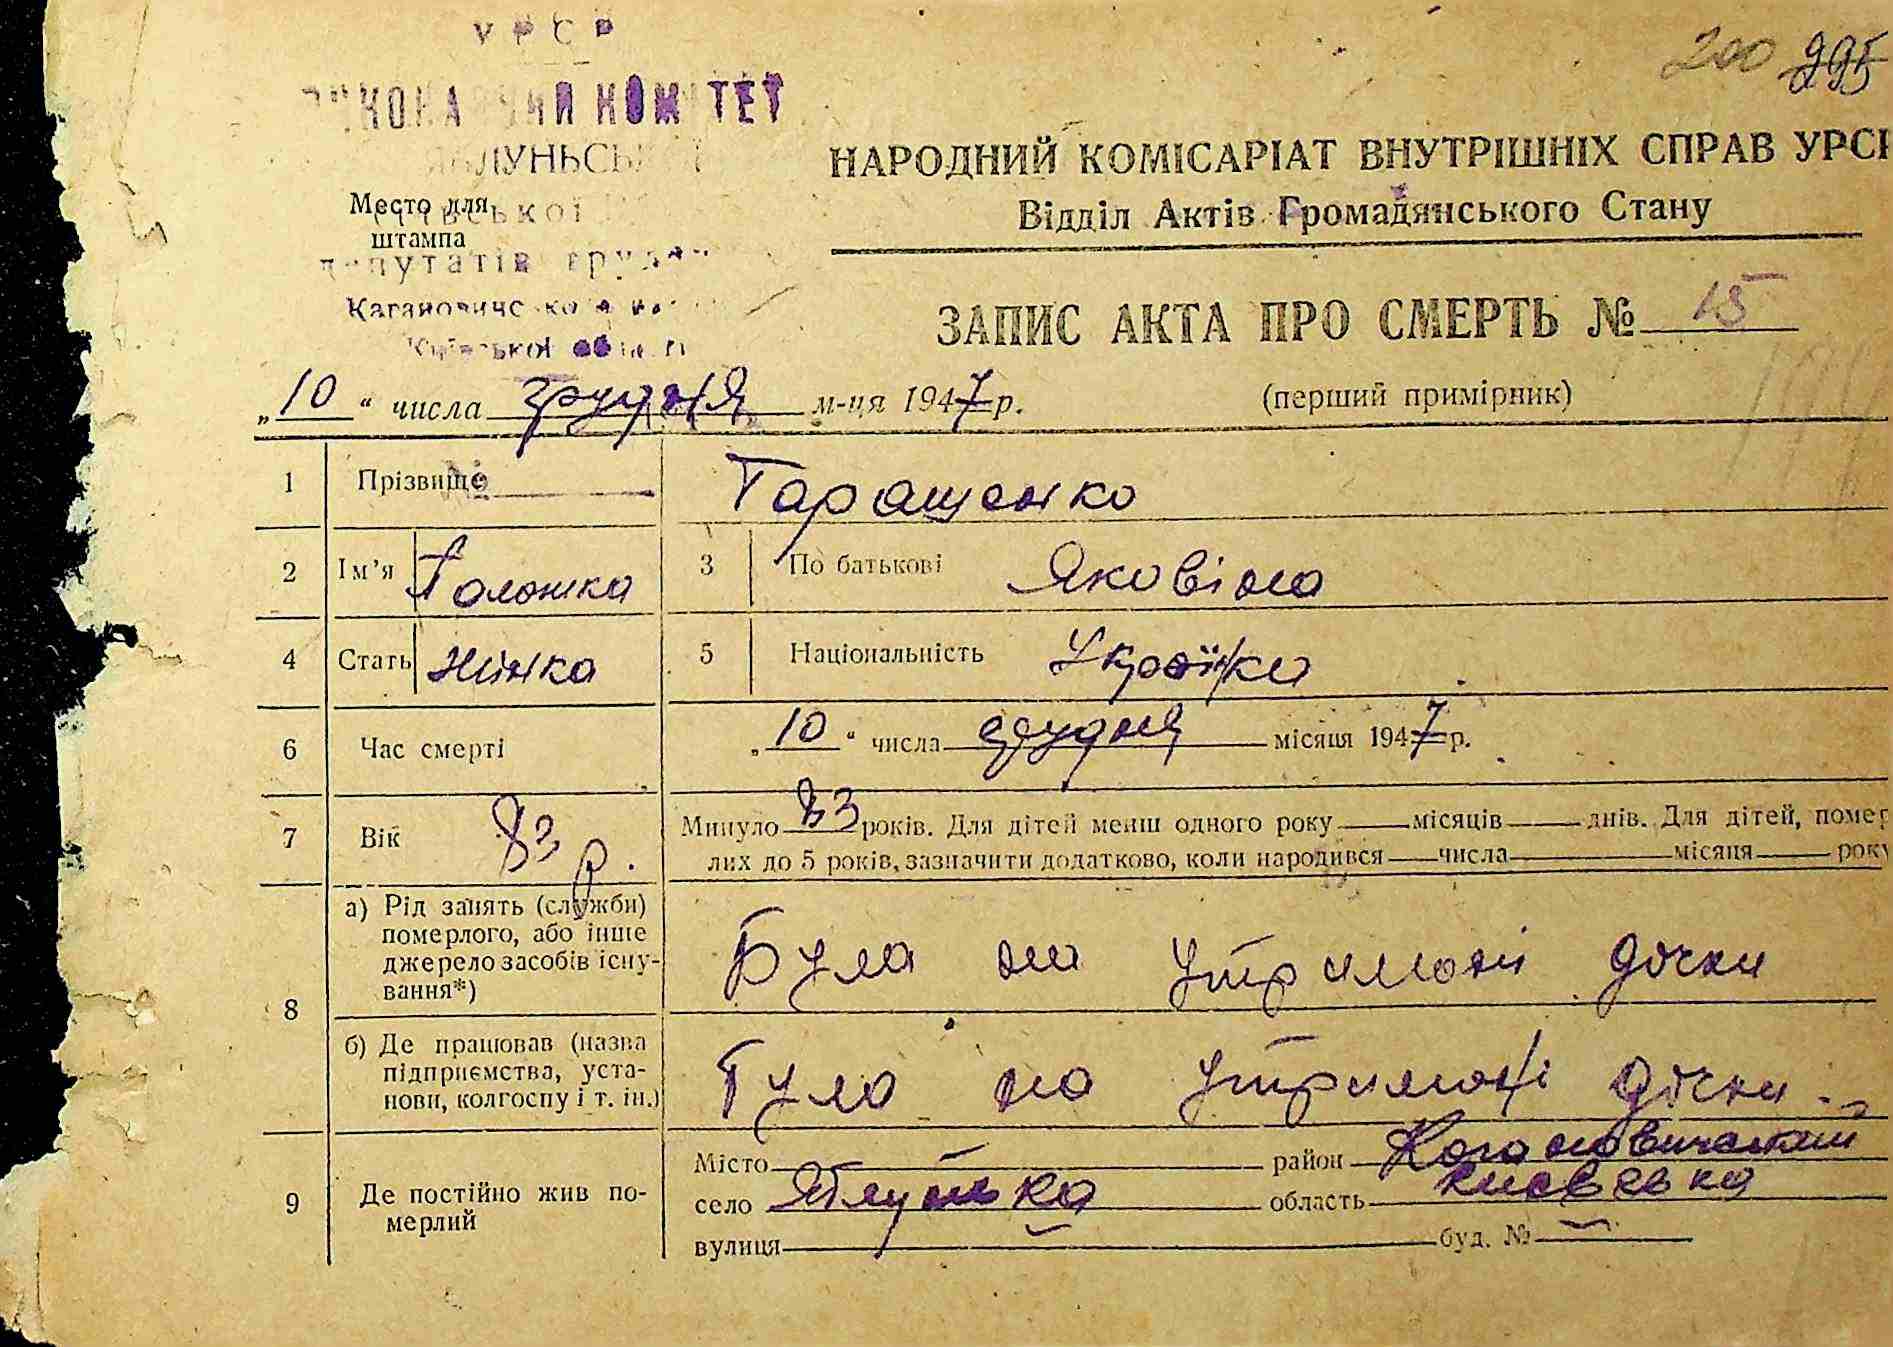 УРСР
200 295
ВИКОНАВЧИЙ КОМІТЕТ
ЯБЛУНЬСЬКОЇ
НАРОДНИЙ КОМІСАРІАТ ВНУТРІШНІХ СПРАВ УРСР
Место для
штампа
Відділ Актів Громадянського Стану
депутатів трудящих
Кагановичс
Київської області
ЗАПИС АКТА ПРО СМЕРТЬ № 15
„10“ числа грудня м-ця 1947 р.
(перший примірник)
1 Прізвище Таращенко
2 Ім’я Палажка 3 По батькові Яковівна
4 Стать жінка 5 Національність Українка
6 Час смерті „10“ числа грудня місяця 1947 р.
7 Вік 83 р. Минуло 83 років. Для дітей менш одного року — місяців — днів. Для дітей, помер-
лих до 5 років, зазначити додатково, коли народився — числа — місяця — року
8 а) Рід занять (служби)
померлого, або інше
джерело засобів існу-
вання*)
Була на утримані дочки
б) Де працював (назва
підприємства, уста-
нови, колгоспу і т. ін.)
Була на утримані дочки
9 Де постійно жив по-
мерлий
Місто — район Кагановичський
село Яблунька область Киевська
вулиця — буд. № —